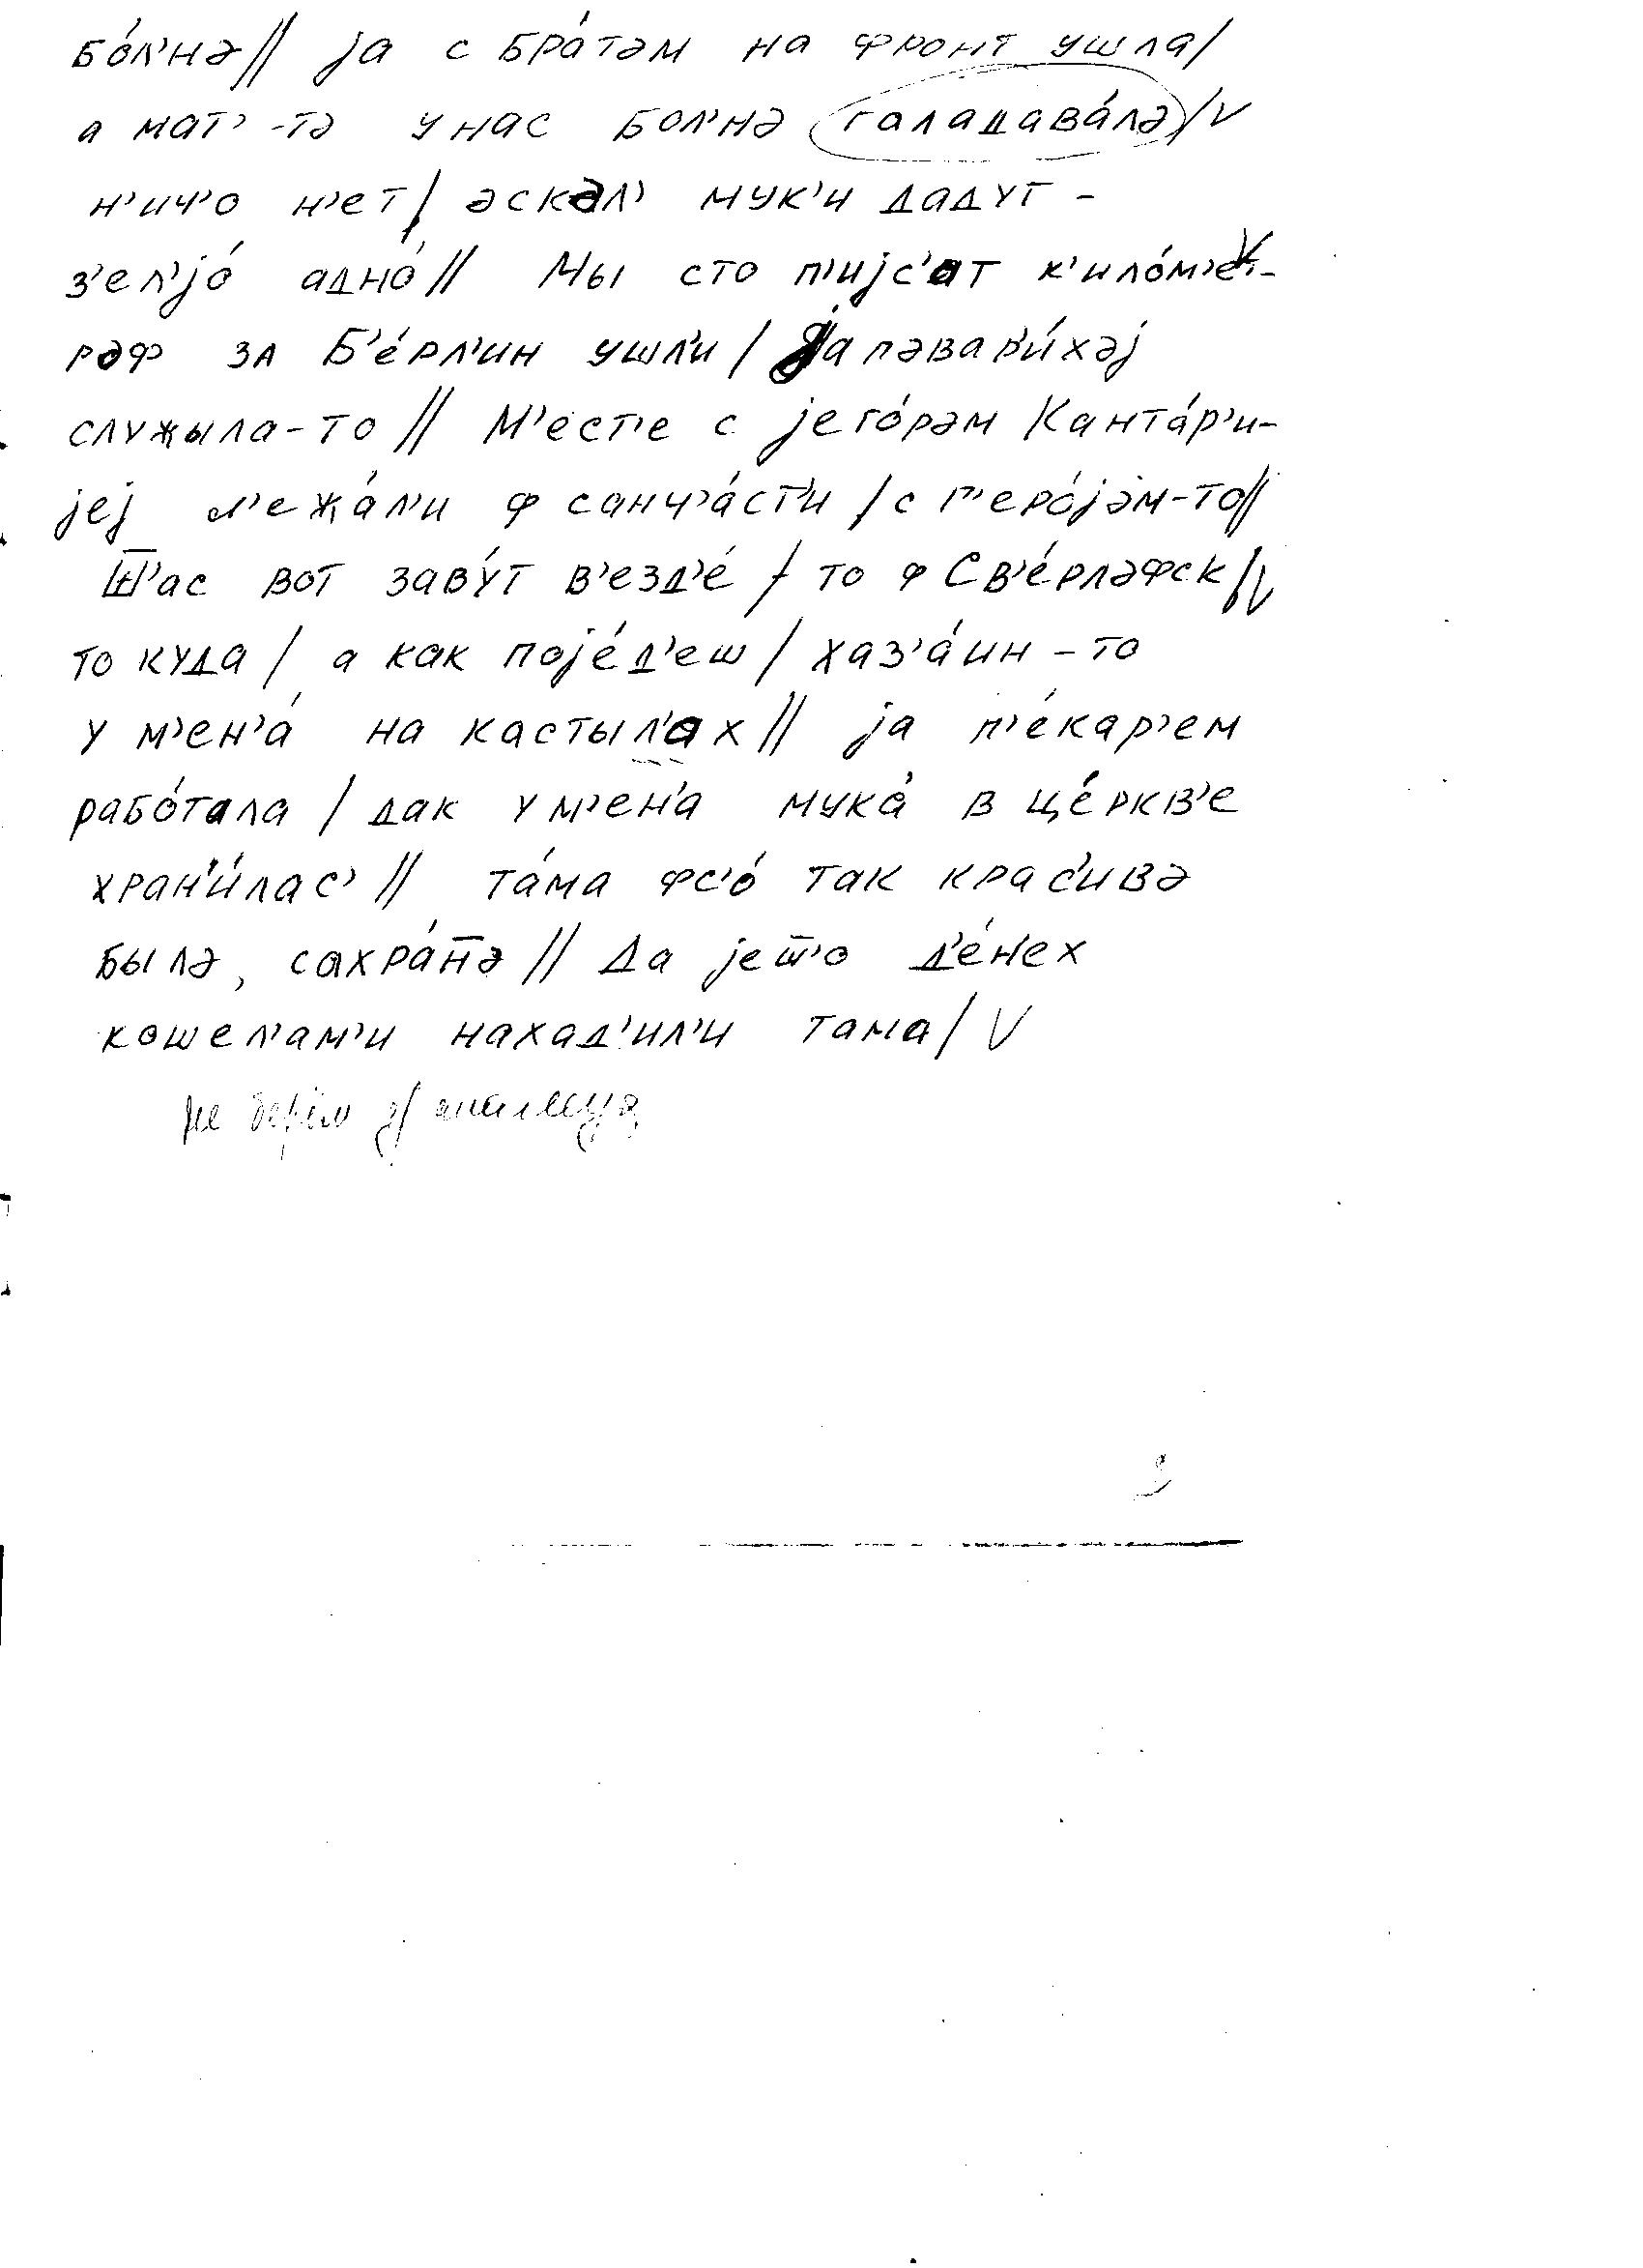 бо́л'нə// ја с бра́тəм на фронт ушла/
а мат'-тə у нас бол'нə галадава́лə/V
н'ич'о н'ет/ əскəл' мук'и дадут -
з'ел'јо́ адно́// Мы сто п'ијс'ат к'ило́м'ет-
рəф за Б'е́рл'ин ушл'и/ ја пəвар'и́хəј
служыла-то// М'ест'е с јего́рəм Канта́р'и-
јеј л'ежа́л'и ф санч'а́ст'и/с г'еро́јəм-то//
Ш̅'ас вот заву́т в'езд'е́/ то ф Св'е́рлəфск/V
то куда/ а как појед'еш/ хаз'а́ин-то
у м'ен'а́ на кастыл'ах// ја п'е́кар'ем
рабо́тала/ дак у м'ен'а мука́ в це́ркв'е
хран'и́лас'// та́ма фс'о́ так крас'ивə
былə, сахра́н̅ə// Да јеш̅'о д'е́н'ех
кошел'ам'и нахад'ил'и тама/ V